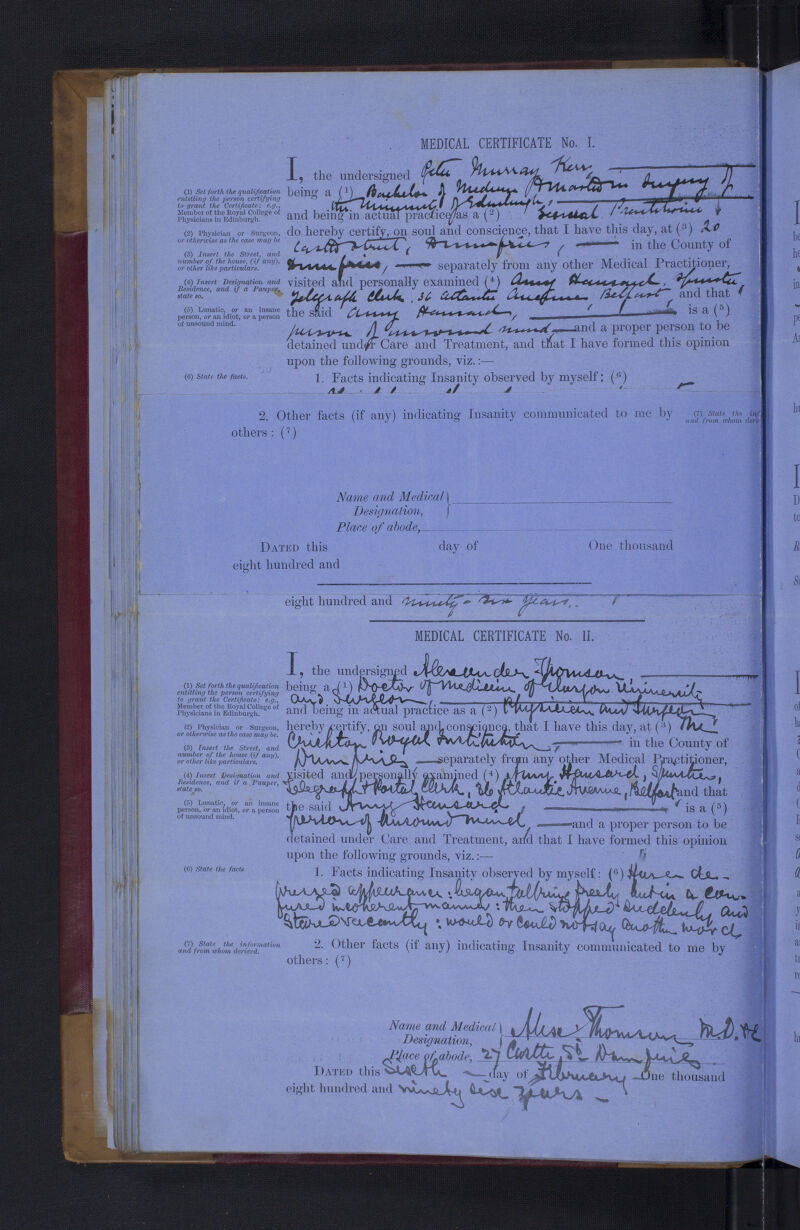 MEDICAL CERTIFICATE No. I.
I, the undersigned Peter Murray Kerr
(1) Set forth the qualification entitling the person certifying to grant the Certificate; e.g., Member of the Royal College of Physicians in Edinburgh.
being a (1) Bachelor of Medicine & Master in Surgery of
the University of Edinburgh,
and being in actual practice as a (2) General Practitioner
(2) Physician or Surgeon, or otherwise as the case may be
do hereby certify, on soul and conscience, that I have this day, at (3) 20
Castle Street, Dumfries, in the County of
(3) Insert the Street, and number of the house, (if any), or other like particulars.
Dumfries, separately from any other Medical Practitioner,
(4) Insert Designation and Residence, and if a Pauper, state so.
visited and personally examined (4) Annie Hansard, Spinster,
Telegraph Clerk, 36 Atlantic Avenue, Belfast, and that
(5) Lunatic, or an insane person, or an idiot, or a person of unsound mind.
the said Annie Hansard, is a (5)
person of unsound mind and a proper person to be
detained under Care and Treatment, and that I have formed this opinion
upon the following grounds, viz.:—
(6) State the facts.
1. Facts indicating Insanity observed by myself: (6)
2. Other facts (if any) indicating Insanity communicated to me by
(7) State the inf
and from whom deriv
others: (7)
Name and Medical
Designation,
Place of abode,
DATED this day of One thousand
eight hundred and
eight hundred and ninety-six years.
MEDICAL CERTIFICATE No. II.
I, the undersigned Alexander Thomson,
(1) Set forth the qualification entitling the person certifying to grant the Certificate; e.g., Member of the Royal College of Physicians in Edinburgh.
being a (1) Doctor of Medicine of Glasgow University
and Surgeon
and being in actual practice as a (2) Physician and Surgeon
(2) Physician or Surgeon, or otherwise as the case may be.
hereby certify, on soul and conscience, that I have this day, at (3) The
Crichton Royal Institution, in the County of
(3) Insert the Street, and number of the house (if any), or other like particulars.
Dumfries separately from any other Medical Practitioner,
(4) Insert Designation and Residence, and if a Pauper, state so.
visited and personally examined (4) Annie Hansard, Spinster,
Telegraph & Postal Clerk, 36 Atlantic Avenue, Belfast and that
(5) Lunatic, or an insane person, or an idiot, or a person of unsound mind.
the said Annie Hansard, is a (5)
person of unsound mind, and a proper person to be
detained under Care and Treatment, and that I have formed this opinion
upon the following grounds, viz.:—
(6) State the facts
1. Facts indicating Insanity observed by myself: (6) Has a de-
pressed appearance: began talking freely but in a con-
fused incoherent manner: then stopped suddenly and
stared vacantly: would or could not say another word
(7) State the information and from whom derived.
2. Other facts (if any) indicating Insanity communicated to me by
others: (7)
Name and Medical Alex. Thomson M.D.
Designation,
Place of abode, 27 Castle St Dumfries
DATED this Sixth day of February One thousand
eight hundred and ninety six years